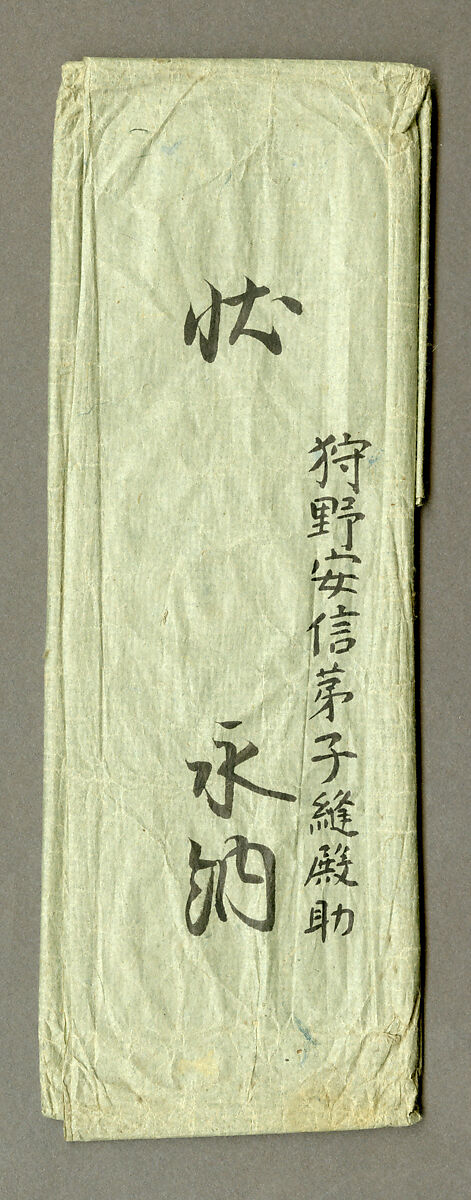 狩野安信弟子縫殿助
状 永納